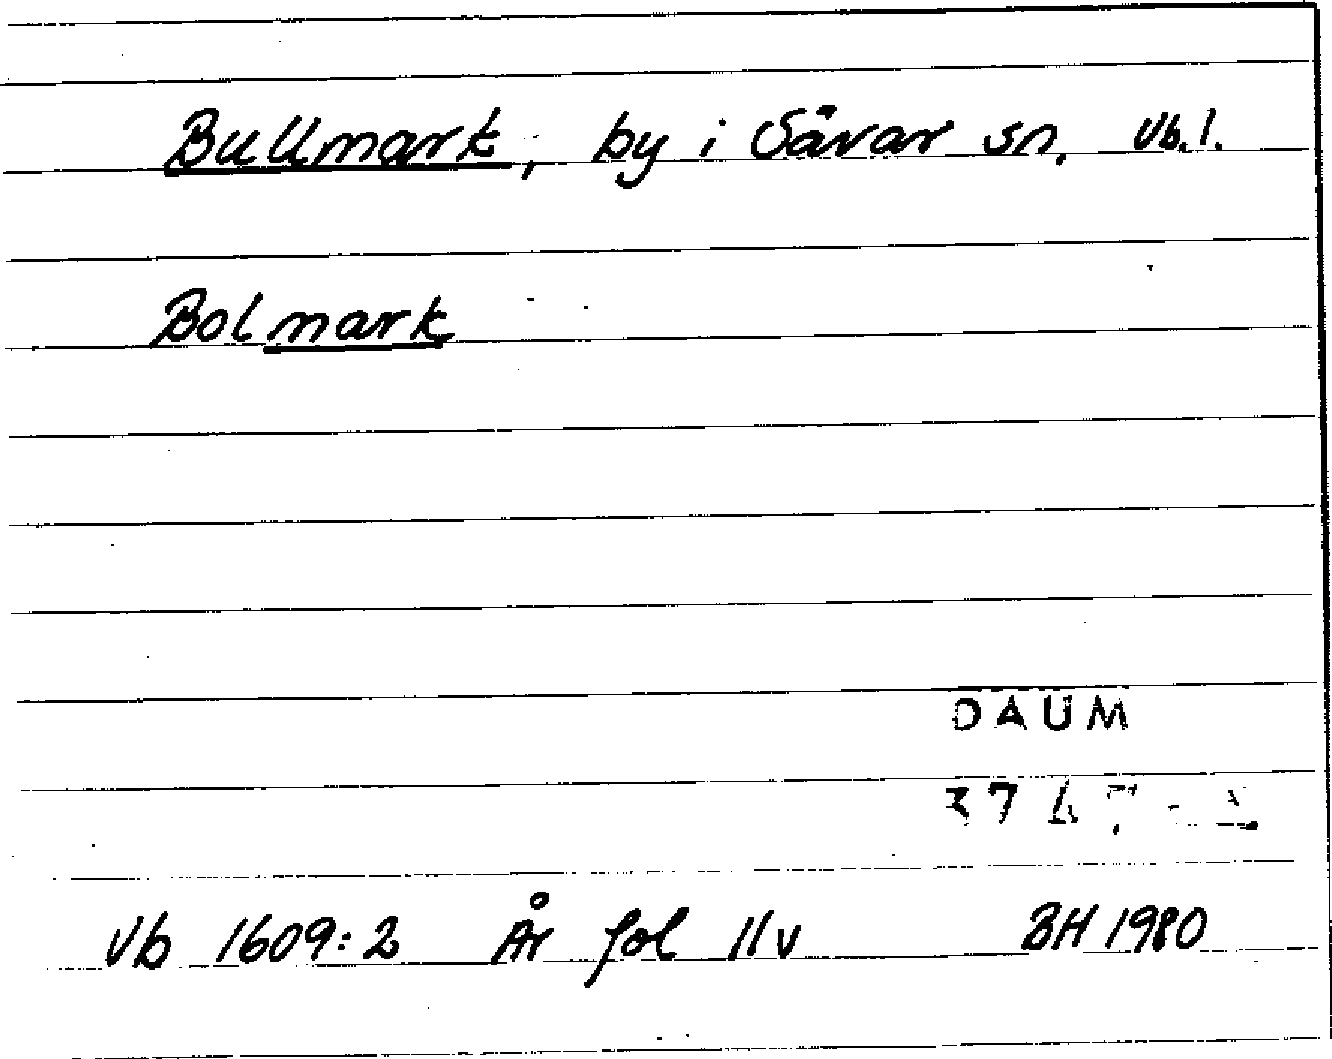 Bullmark, by i Sävar sn, Vb.l.
Bolmark
DAUM
Vb 1609:2 År fol 11v BH 1980